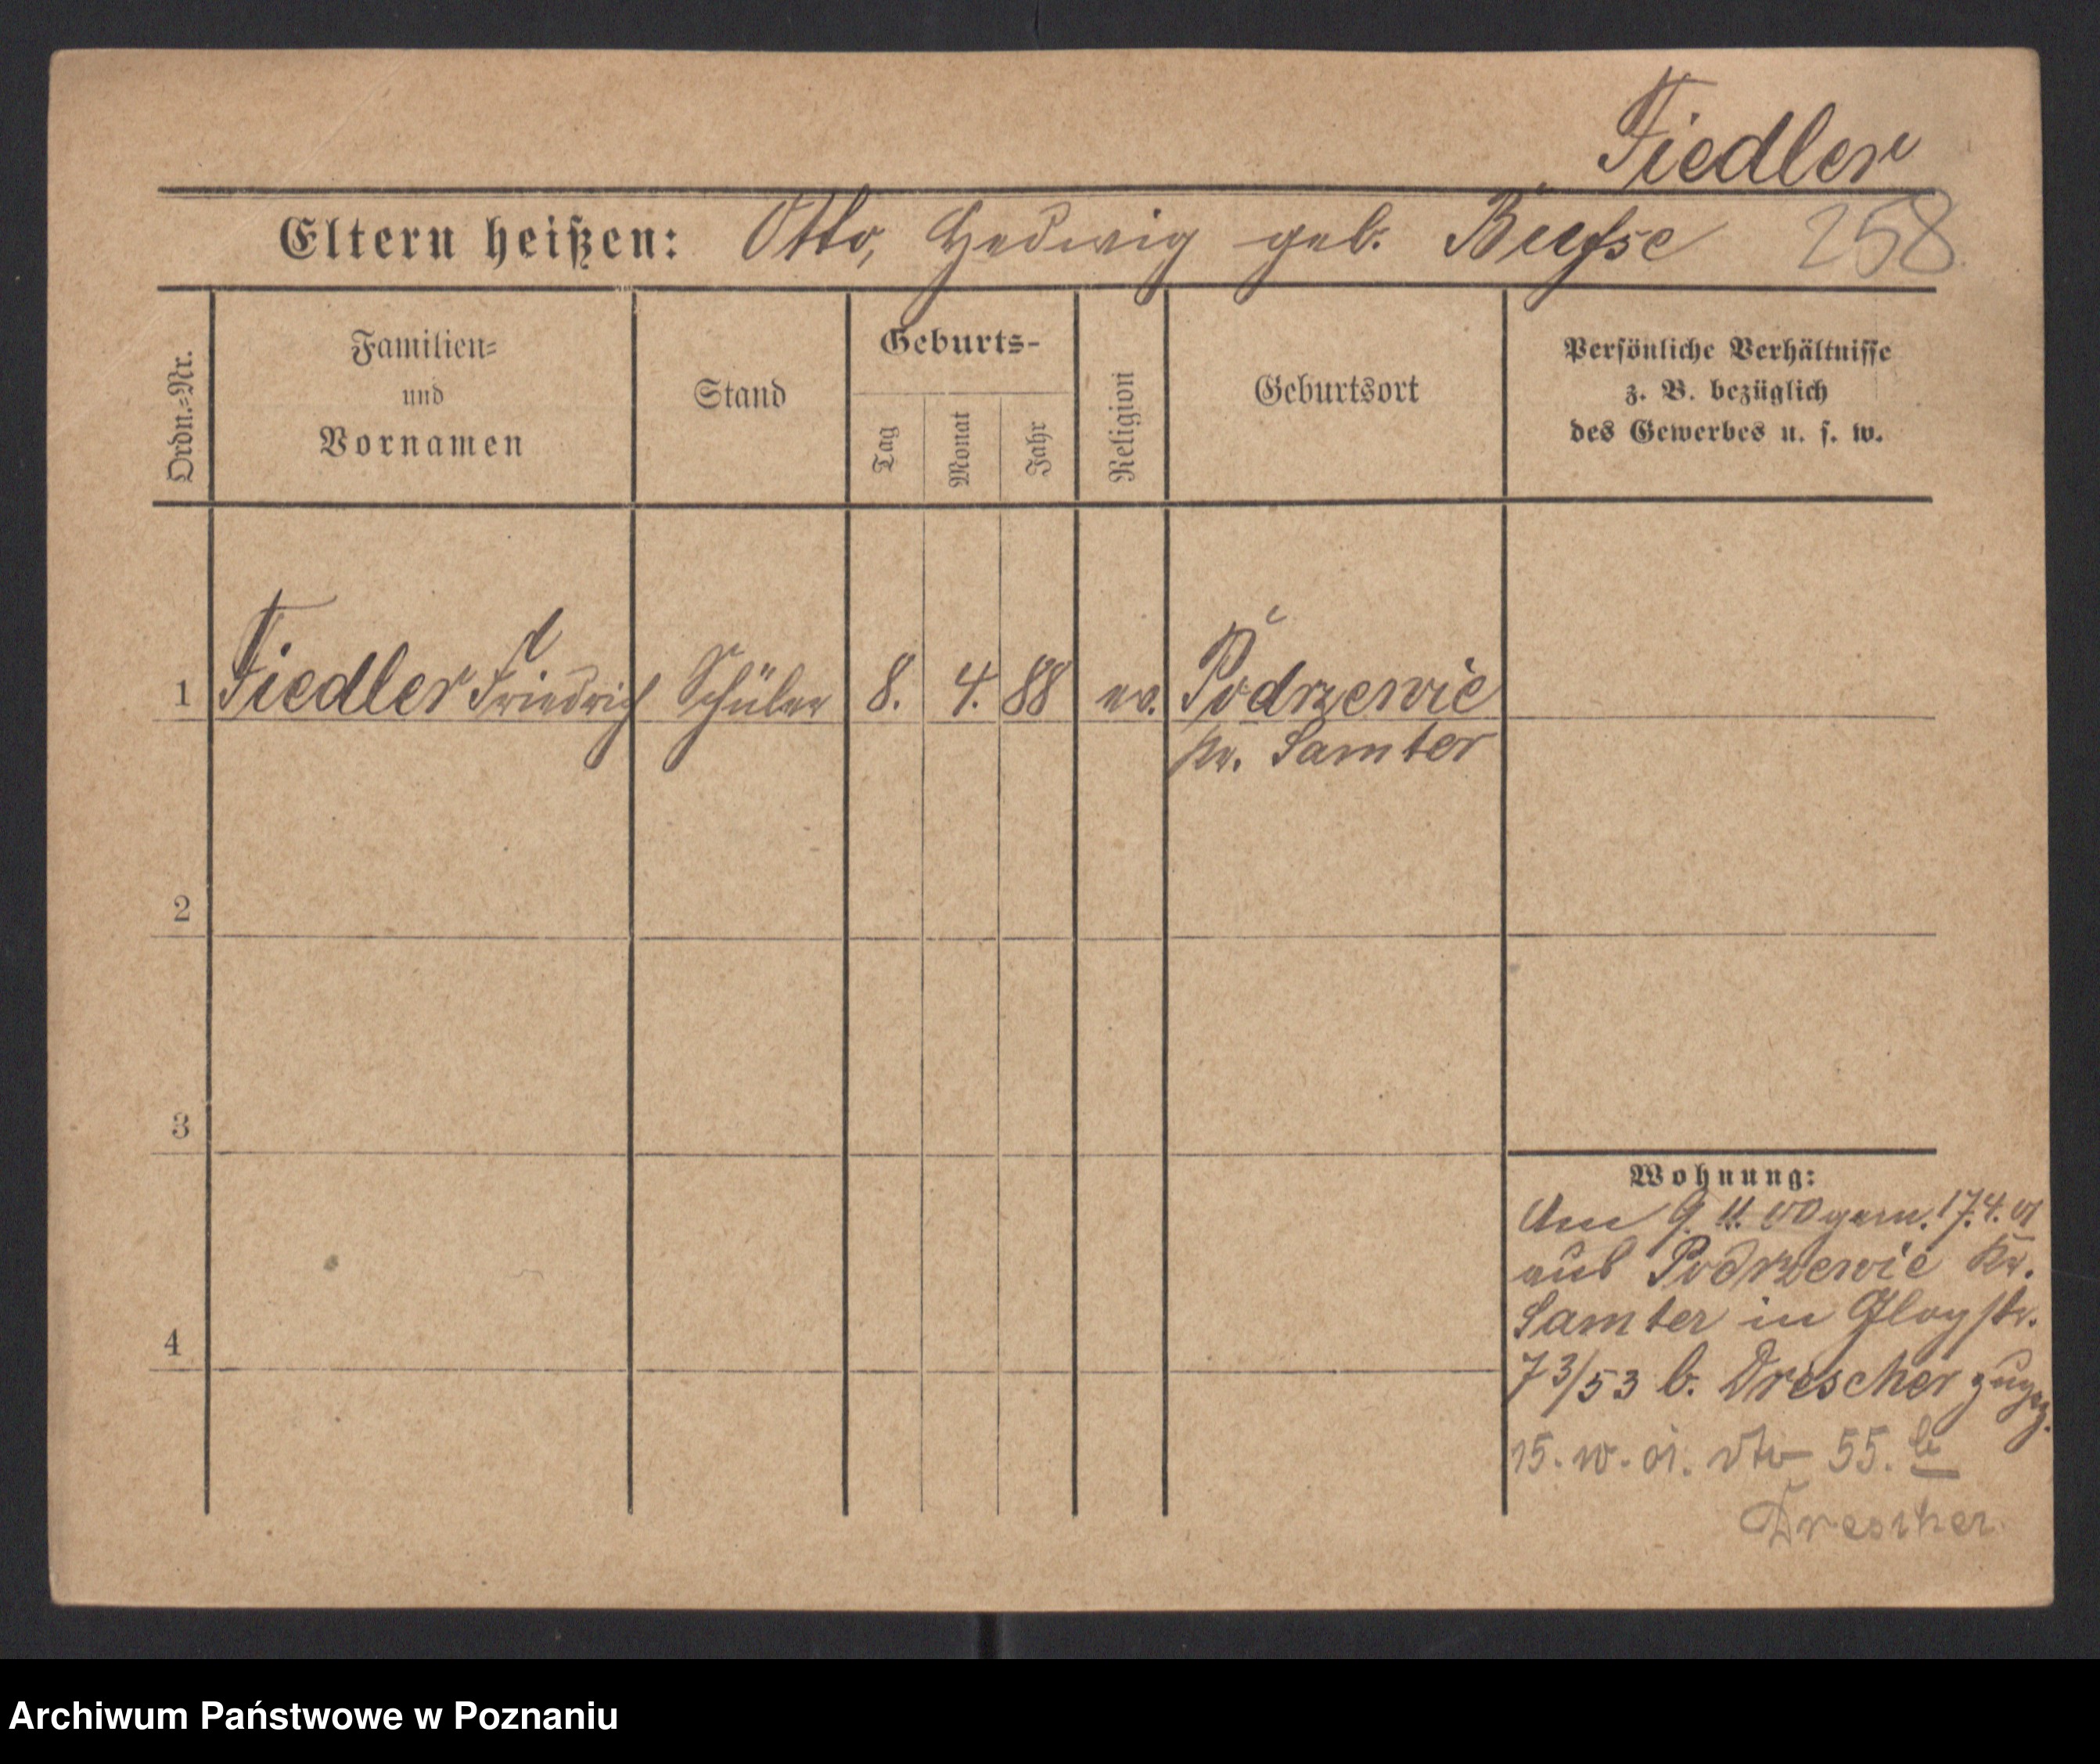 Fiedler
Eltern heißen: Otto, Hedwig geb. Busse 258
Ordn.=Nr.
Familien=
und
Vornamen
Stand
Geburts-
Tag
Monat
Jahr
Religion
Geburtsort
Persönliche Verhältnisse
z. B. bezüglich
des Gewerbes u. s. w.
1 Fiedler Friedrich Schüler 8. 4. 88 ev. Podrzewie
Kr. Samter
2
3
4
Wohnung:
Am 9. 11. 00 gem. 17.4.01
aus Podrzewie Kr.
Samter in Glogstr.
73/53 b. Drescher zugez.
15. 10. 01. dto 55. b
Drescher
Archiwum Państwowe w Poznaniu